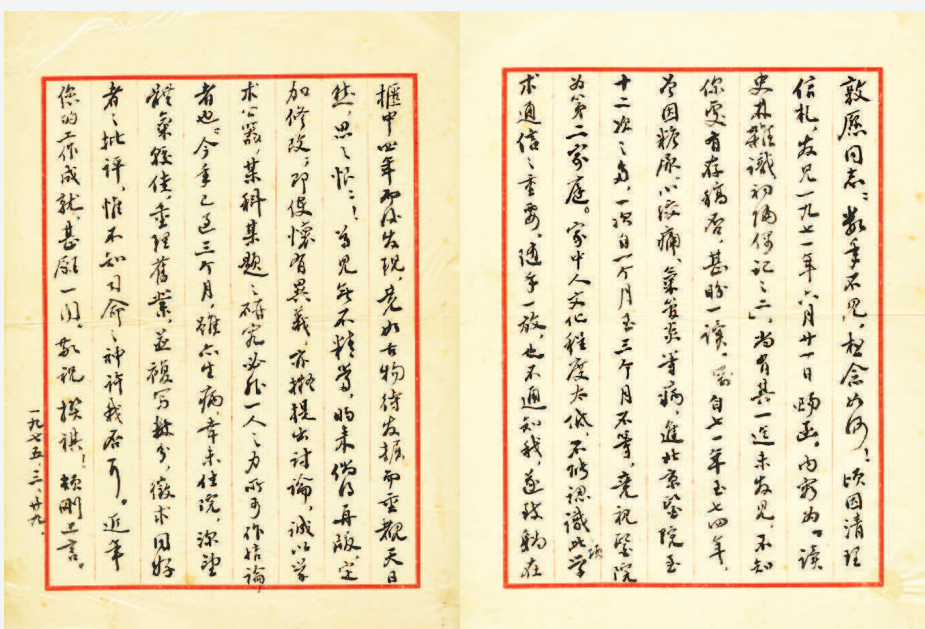 敦愿同志：数年不见，想念如何！顷因清理
信札，发见一九七一年六月廿一日赐函，内容为“读
史林杂识初编偶记之二”，尚有其一迄未发见，不知
你处有存稿否，甚盼一读。刚自七一年至七四年，
为因糖尿、心绞痛、气管炎等病，进北京医院至
十二次之多，一次自一个月至三个月不等，竟视医院
为第二家庭。家中人文化程度太低，不能认识此项学
术通信之重要，随手一放，也不通知我，遂致鞠在
柜中四年而后发现，竟如古物待发掘而重观天日
然，思之怅怅！为见无不精当，昀来倘得再版，定
加修改，即使怀有异义，亦拟提出讨论，诚以学
术公器，某科某题之研究必非一人之力所可作结论
者也。今年已过三个月，虽亦生病，幸未住院，深望
体气经佳，重理旧业，并复写数分，征求同好
者之批评，惟不知司命之神许我否耳。近年
您的工作成就，甚愿一闻。敬祝 撰祺！颉刚上言。
一九七五、三、廿九。